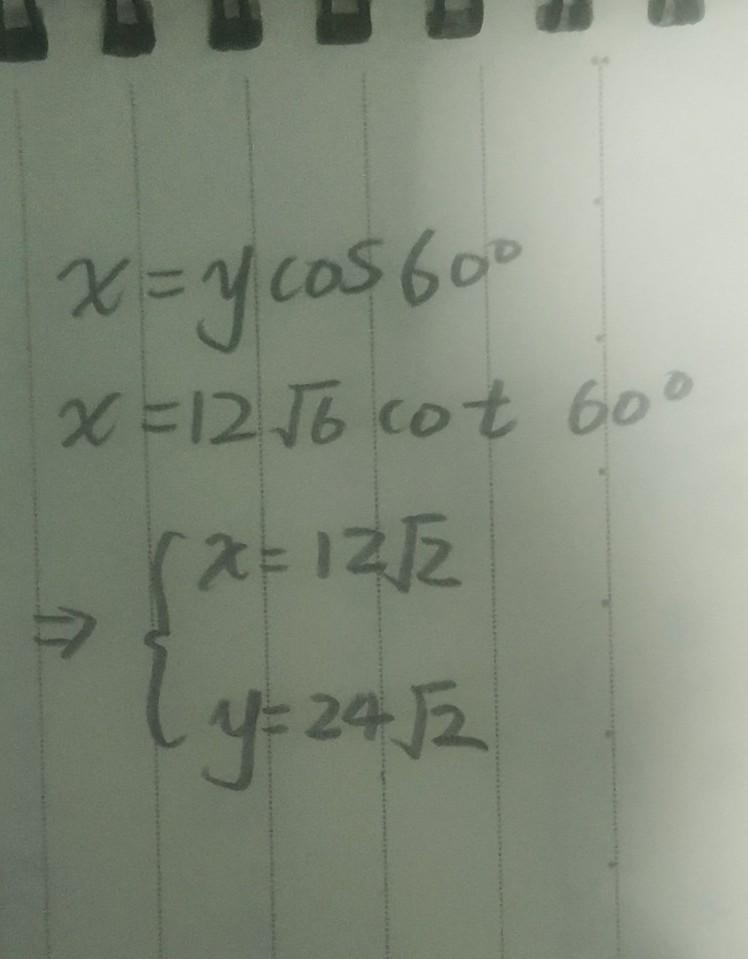 x = y cos 60°
x = 12√6 cot 60°
⇒ { x = 12√2
y = 24√2